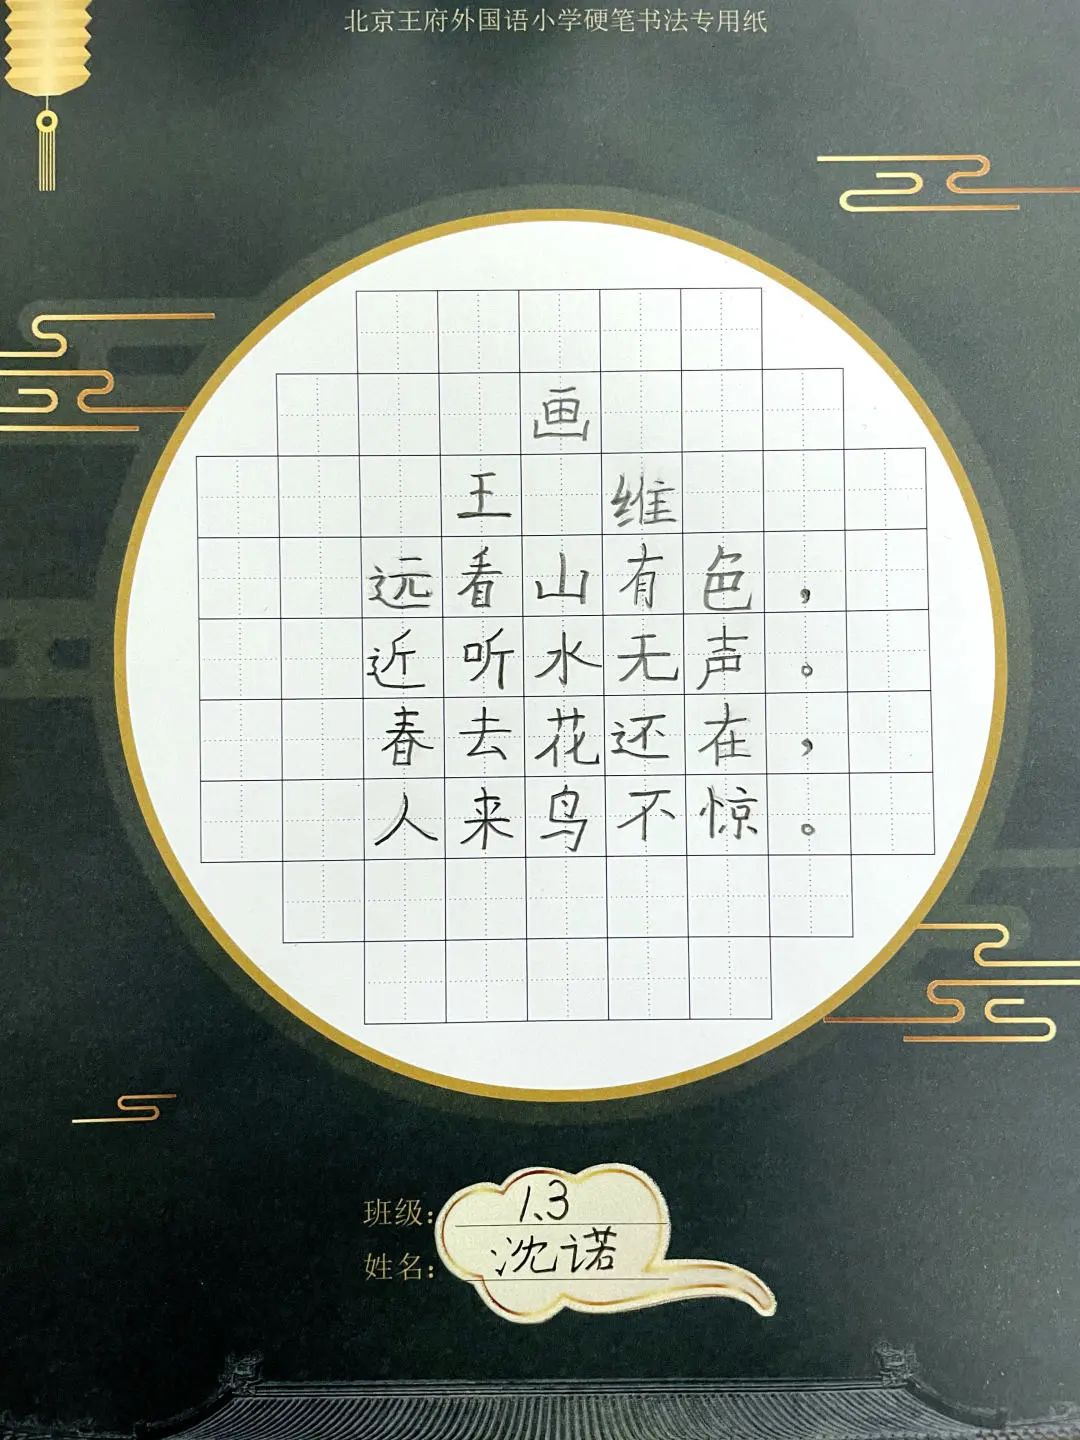 北京王府外国语小学硬笔书法专用纸
画
王 维
远看山有色，
近听水无声。
春去花还在，
人来鸟不惊。
班级：1.3
姓名：沈诺